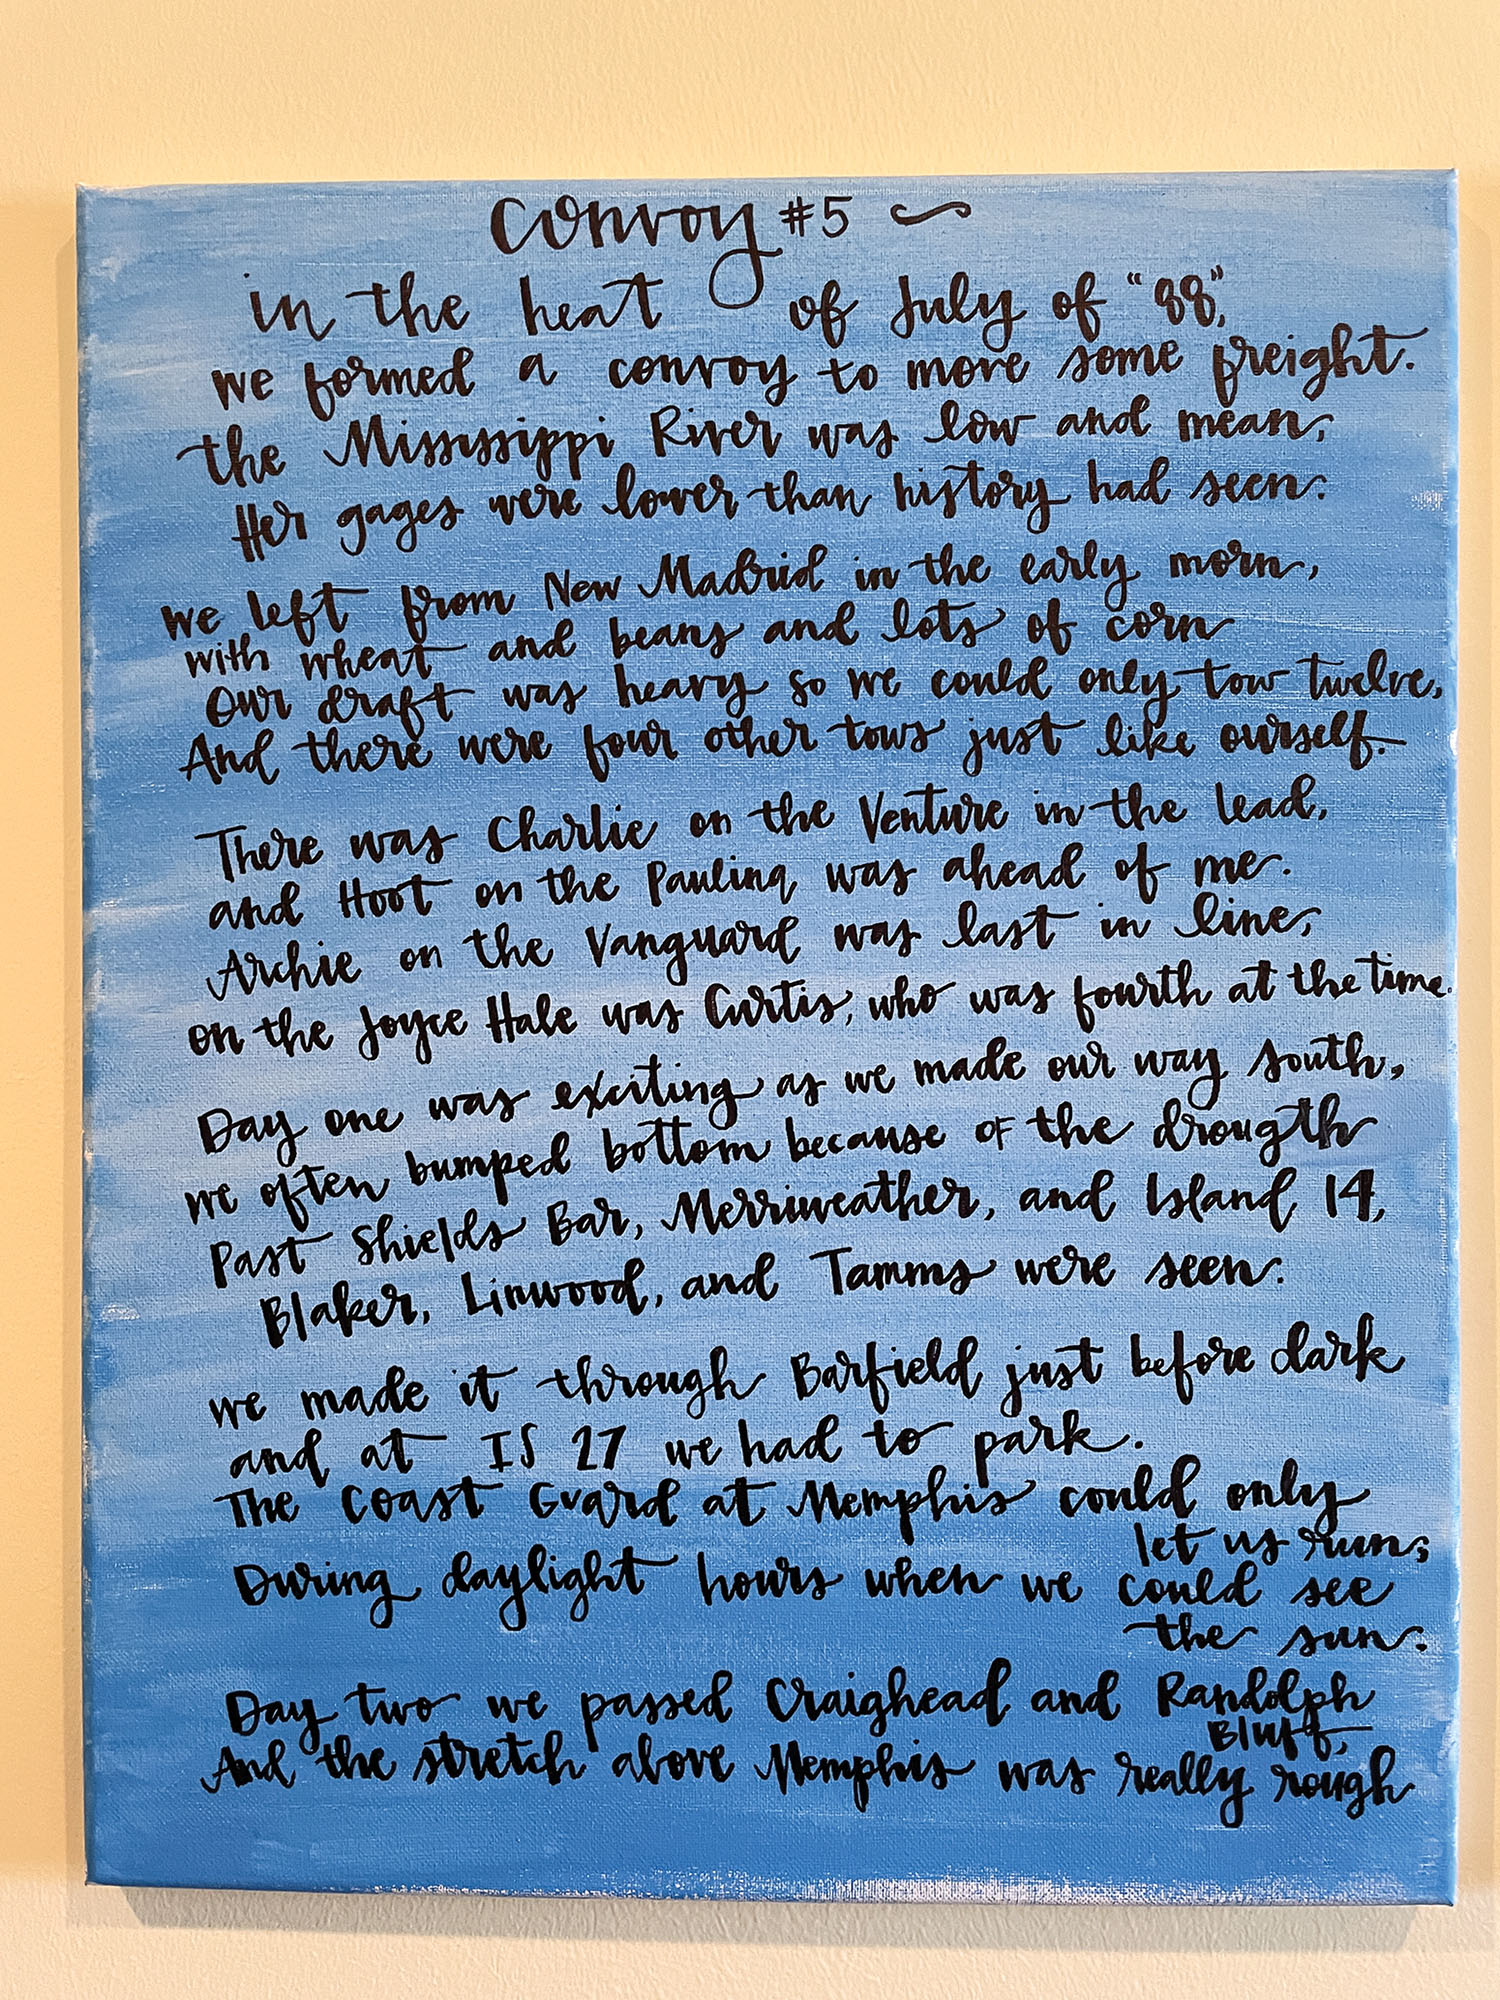 Convoy #5
in the heat of July of "88",
we formed a convoy to move some freight.
the Mississippi River was low and mean,
Her gages were lower than history had seen.
we left from New Madrid in the early morn,
with wheat and beans and lots of corn
Our draft was heavy so we could only tow twelve,
And there were four other tows just like ourself.
There was Charlie on the Venture in the lead,
and Hoot on the Pauling was ahead of me.
Archie on the Vanguard was last in line,
on the Joyce Hale was Curtis, who was fourth at the time.
Day one was exciting as we made our way south,
we often bumped bottom because of the drougth
Past Shields Bar, Merriweather, and Island 14,
Blaker, Linwood, and Tamms were seen.
we made it through Barfield just before dark
and at IS 27 we had to park.
The Coast Guard at Memphis could only
let us run;
During daylight hours when we could see
the sun.
Day two we passed Craighead and Randolph
Bluff,
And the stretch above Memphis was really rough